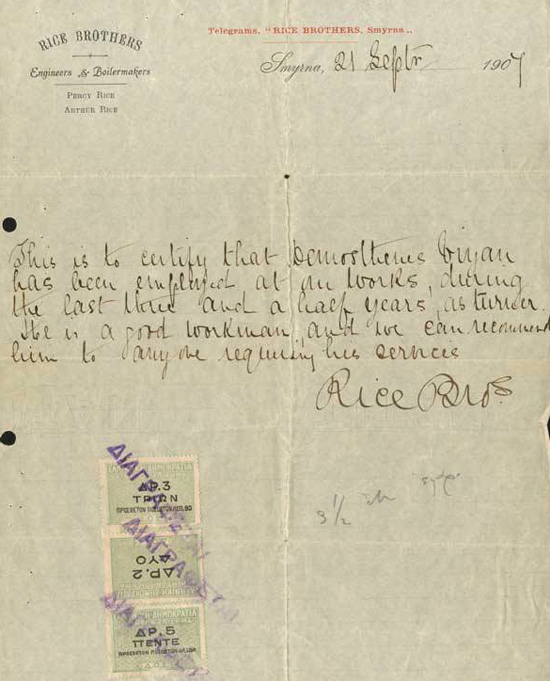 RICE BROTHERS
Engineers & Boilermakers
PERCY RICE
ARTHUR RICE
Telegrams, "RICE BROTHERS, Smyrna"..
Smyrna, 21 Septr 1907
This is to certify that Demosthenes
has been employed at our works, during
the last three and a half years, as turner.
He is a good workman, and we can recommend
him to anyone requiring his services
Rice Bros
3 1/2
ΔΙΑΓΡΑΦΕΤΑΙ
ΔΡ.3
ΤΡΙΩΝ
ΔΙΑΓΡΑΦΕΤΑΙ
ΔΡ.2
ΔΥΟ
ΔΙΑΓΡΑΦΕΤΑΙ
ΔΡ.5
ΠΕΝΤΕ